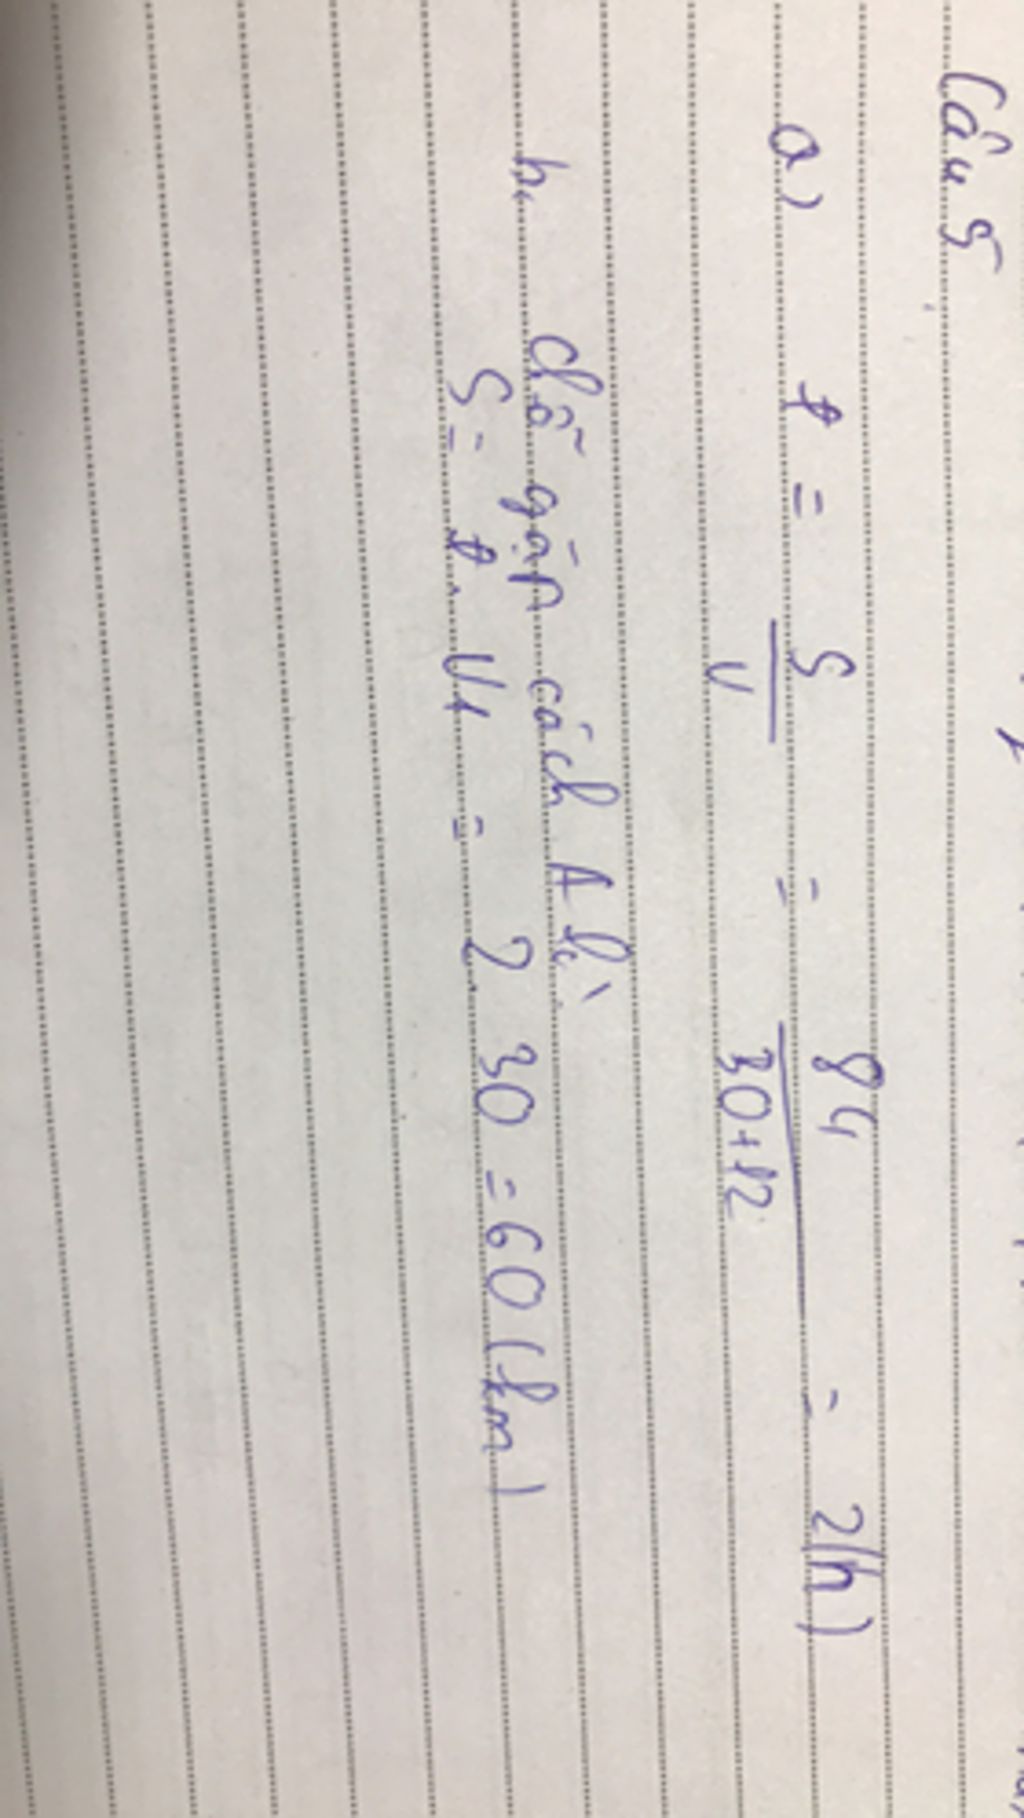 Câu 5
a) t = S/V = 84/30+12 = 2(h)
b, chỗ gặp cách A là
S = t. V1 = 2. 30 = 60 (km)